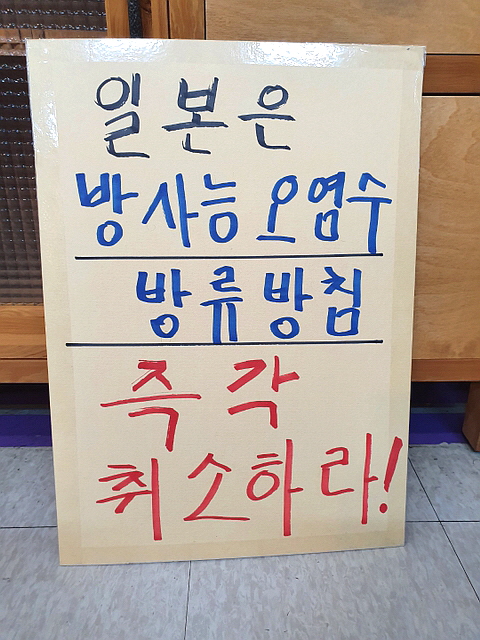 일본은
방사능 오염수
방류 방침
즉각
취소하라!